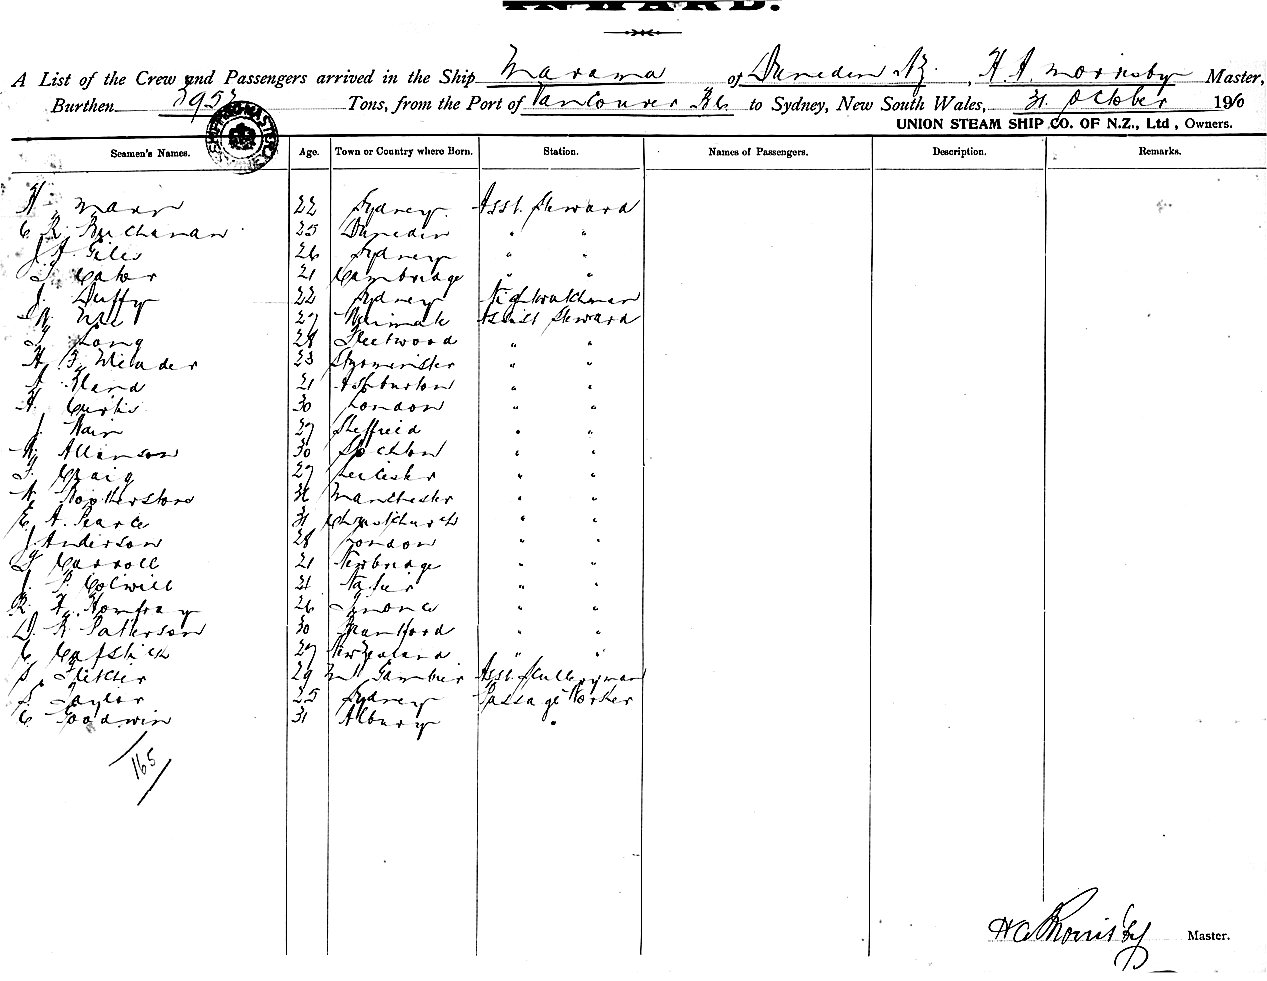 INWARD.
A List of the Crew and Passengers arrived in the Ship Marama of Dunedin NZ, H A Mornsby Master,
Burthen 3953 Tons, from the Port of Vancouver BC to Sydney, New South Wales, 31 October 1910
UNION STEAM SHIP CO. OF N.Z., Ltd, Owners.
Seamen's Names. Age. Town or Country where Born. Station. Names of Passengers. Description. Remarks.
H Mann 22 Sydney Asst. Steward
C R Buchanan 25 Dunedin " "
J A Giles 26 Sydney " "
T Cater 21 Cambridge " "
J. Duffy 22 Sydney Nightwatchman
27 Assist Steward
T Long 28 Fleetwood " "
H F Meader 23 " "
A Bland 21 Ashburton " "
H. Curtis 30 London " "
J. Nair 27 Sheffield " "
Allinson 30 Stockton " "
T. Craig 27 Leicester " "
Manchester " "
E A. Pearce 31 Christchurch " "
J. Anderson 28 London " "
T Carroll 21 Newbridge " "
J P. Colwill 21 Napier " "
R. H. Homfray 26 " "
D. R Patterson 30 " "
C 27 New Zealand " "
S. Fletcher 29 Mt Gambier Asst Sculleryman
S. Taylor 25 Sydney Passage Worker
C Goodwin 31 Albury "
165
H A Mornsby Master.